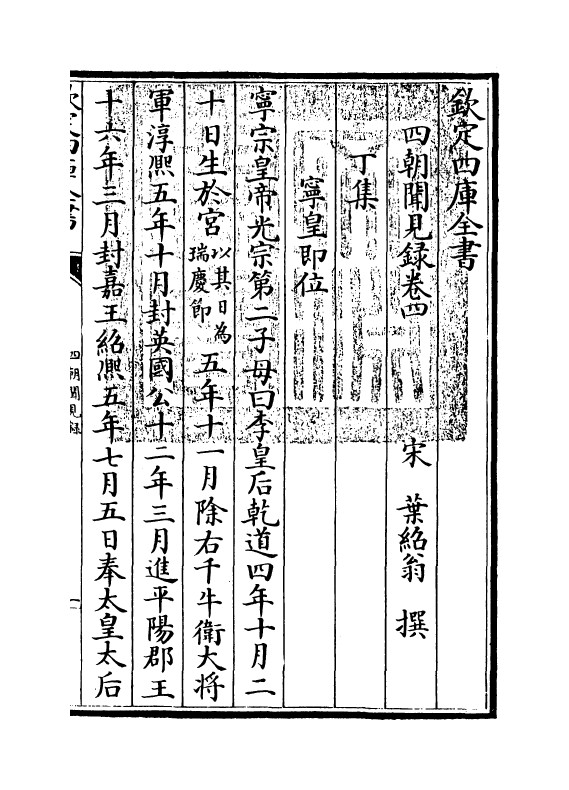 欽定四庫全書
四朝聞見録卷四
宋 葉紹翁 撰
丁集
寧皇即位
寧宗皇帝光宗第二子母曰李皇后乾道四年十月二
十日生於宮以其日為瑞慶節五年十一月除右千牛衛大将
軍淳熙五年十月封英國公十二年三月進平陽郡王
十六年三月封嘉王紹熙五年七月五日奉太皇太后
四朝聞見録
一